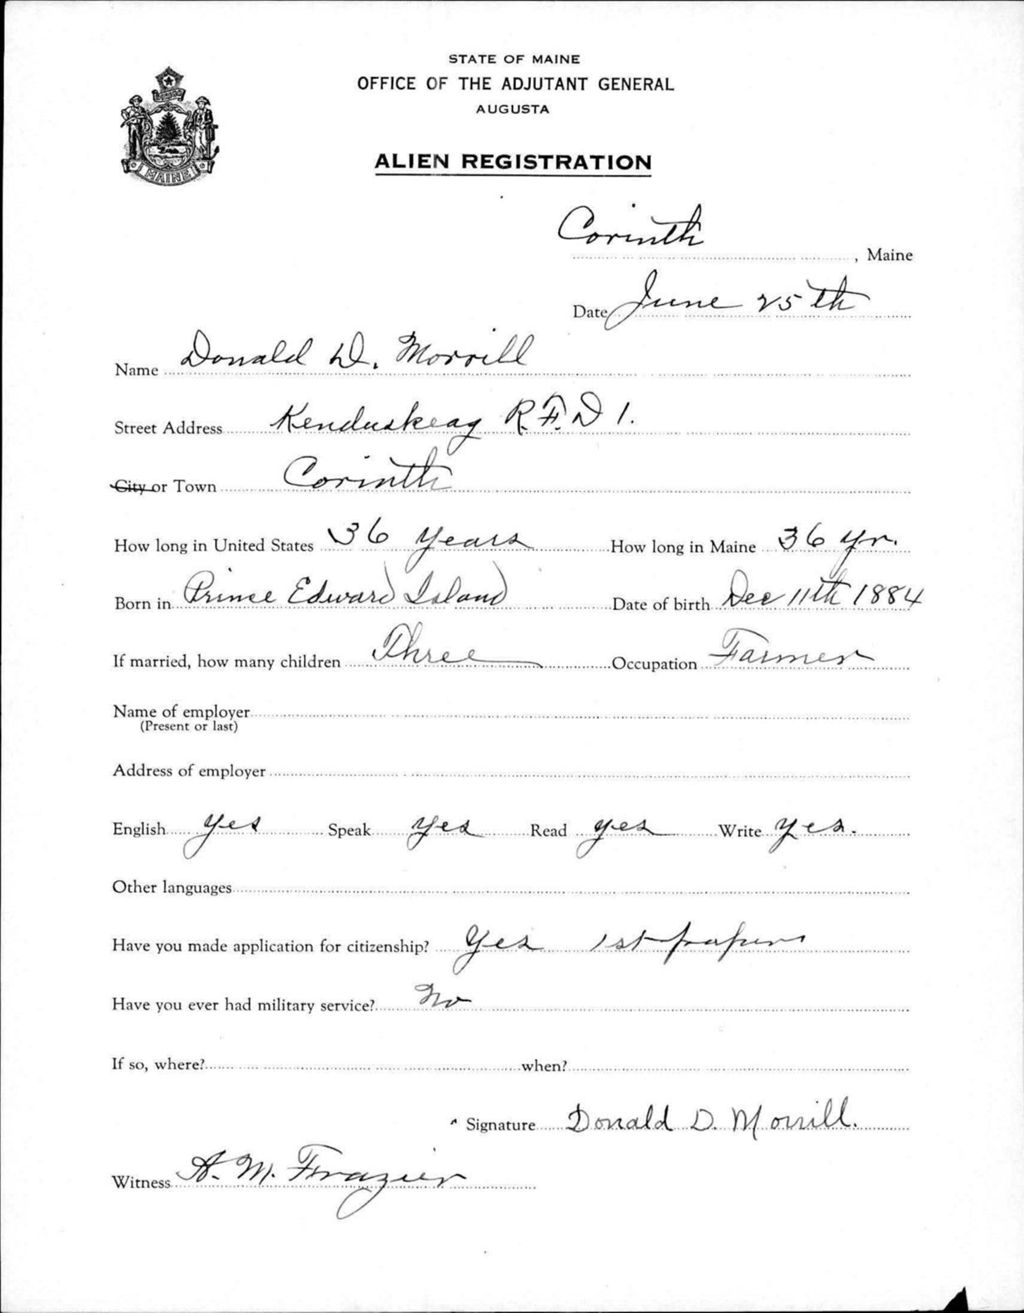 STATE OF MAINE
OFFICE OF THE ADJUTANT GENERAL
AUGUSTA
ALIEN REGISTRATION
MAINE
Corinth, Maine
Date June 25th
Name Donald D. Morrill
Street Address Kenduskeag R.F.D 1.
City or Town Corinth
How long in United States 36 Years How long in Maine 36 yr.
Born in Prince Edward Island Date of birth Dec 11th 1884
If married, how many children Three Occupation Farmer
Name of employer
(Present or last)
Address of employer
English yes Speak yes Read yes Write yes.
Other languages
Have you made application for citizenship? Yes 1st papers
Have you ever had military service? No
If so, where? when?
Signature Donald D. Morrill.
Witness A. M. Frazier